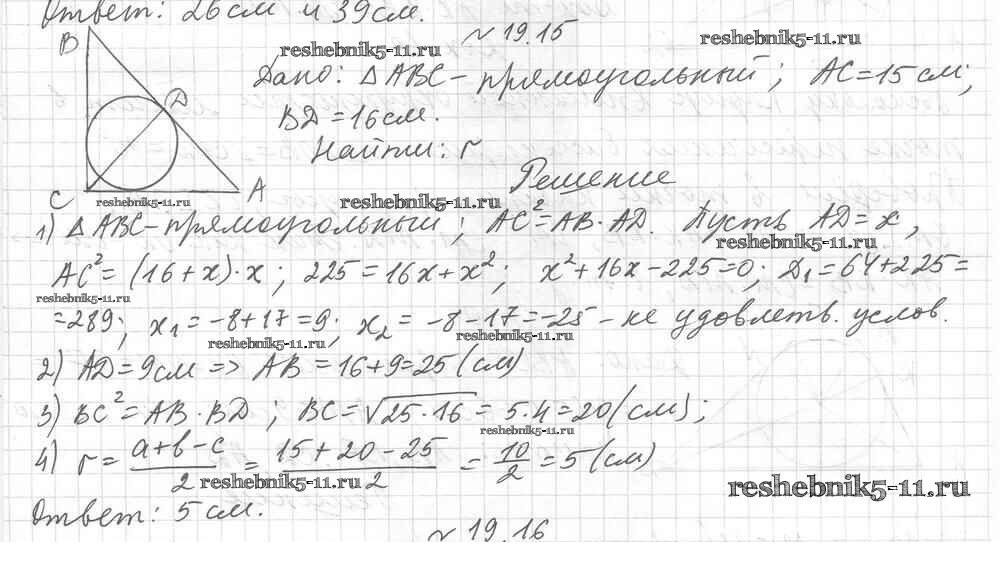 Ответ: 26 см и 39 см.
№ 19.15
B
reshebnik5-11.ru
reshebnik5-11.ru
Дано: △ABC - прямоугольный; AC = 15 см;
D
BD = 16 см.
Найти: r
C
A
reshebnik5-11.ru
reshebnik5-11.ru
Решение
1) △ABC - прямоугольный; AC² = AB · AD. Пусть AD = x,
reshebnik5-11.ru
AC² = (16 + x) · x; 225 = 16x + x²; x² + 16x - 225 = 0; D₁ = 64 + 225 =
reshebnik5-11.ru
= 289; x₁ = -8 + 17 = 9; x₂ = -8 - 17 = -25 - не удовлетв. услов.
reshebnik5-11.ru
reshebnik5-11.ru
2) AD = 9 см => AB = 16 + 9 = 25 (см)
3) BC² = AB · BD; BC = √25 · 16 = 5 · 4 = 20 (см);
reshebnik5-11.ru
4) r = a + b - c / 2 = 15 + 20 - 25 / 2 = 10 / 2 = 5 (см)
reshebnik5-11.ru
reshebnik5-11.ru
Ответ: 5 см.
№ 19.16